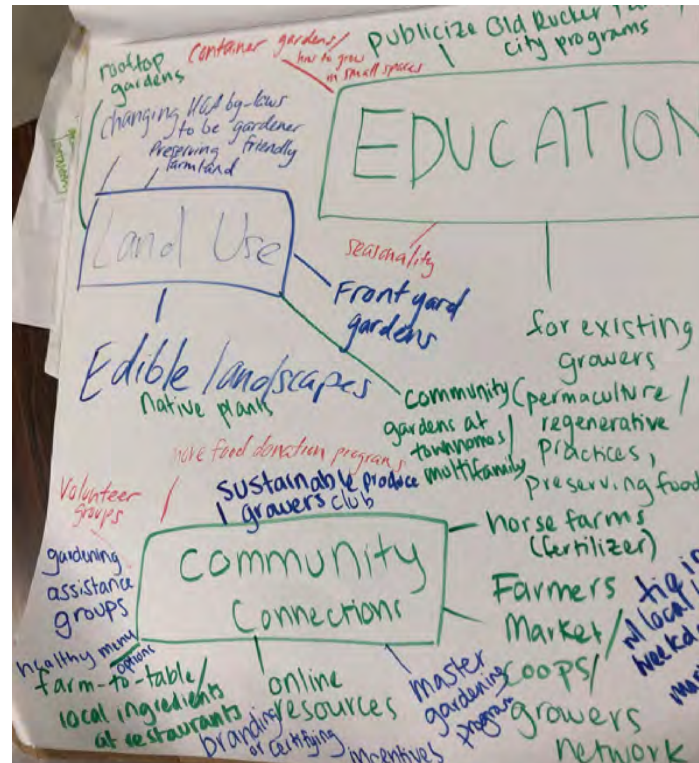 rooftop
gardens
container gardens/
how to grow
in small spaces
publicize Old Rucker
city programs
changing HOA by-laws
to be gardener
friendly
Preserving
farmland
EDUCATION
Land Use
seasonality
Front yard
gardens
for existing
growers
(permaculture/
regenerative
practices,
preserving food
Edible landscapes
Native plants
community
gardens at
townhomes/
multifamily
more food donation programs
sustainable produce
growers club
Volunteer
groups
horse farms
(fertilizer)
gardening
assistance
groups
community
connections
Farmers
Market/
coops/
growers
network
tie in
w/ local
healthy menu
options
farm-to-table/
local ingredients
at restaurants
online
resources
master
gardening
program
branding
or certifying
incentives